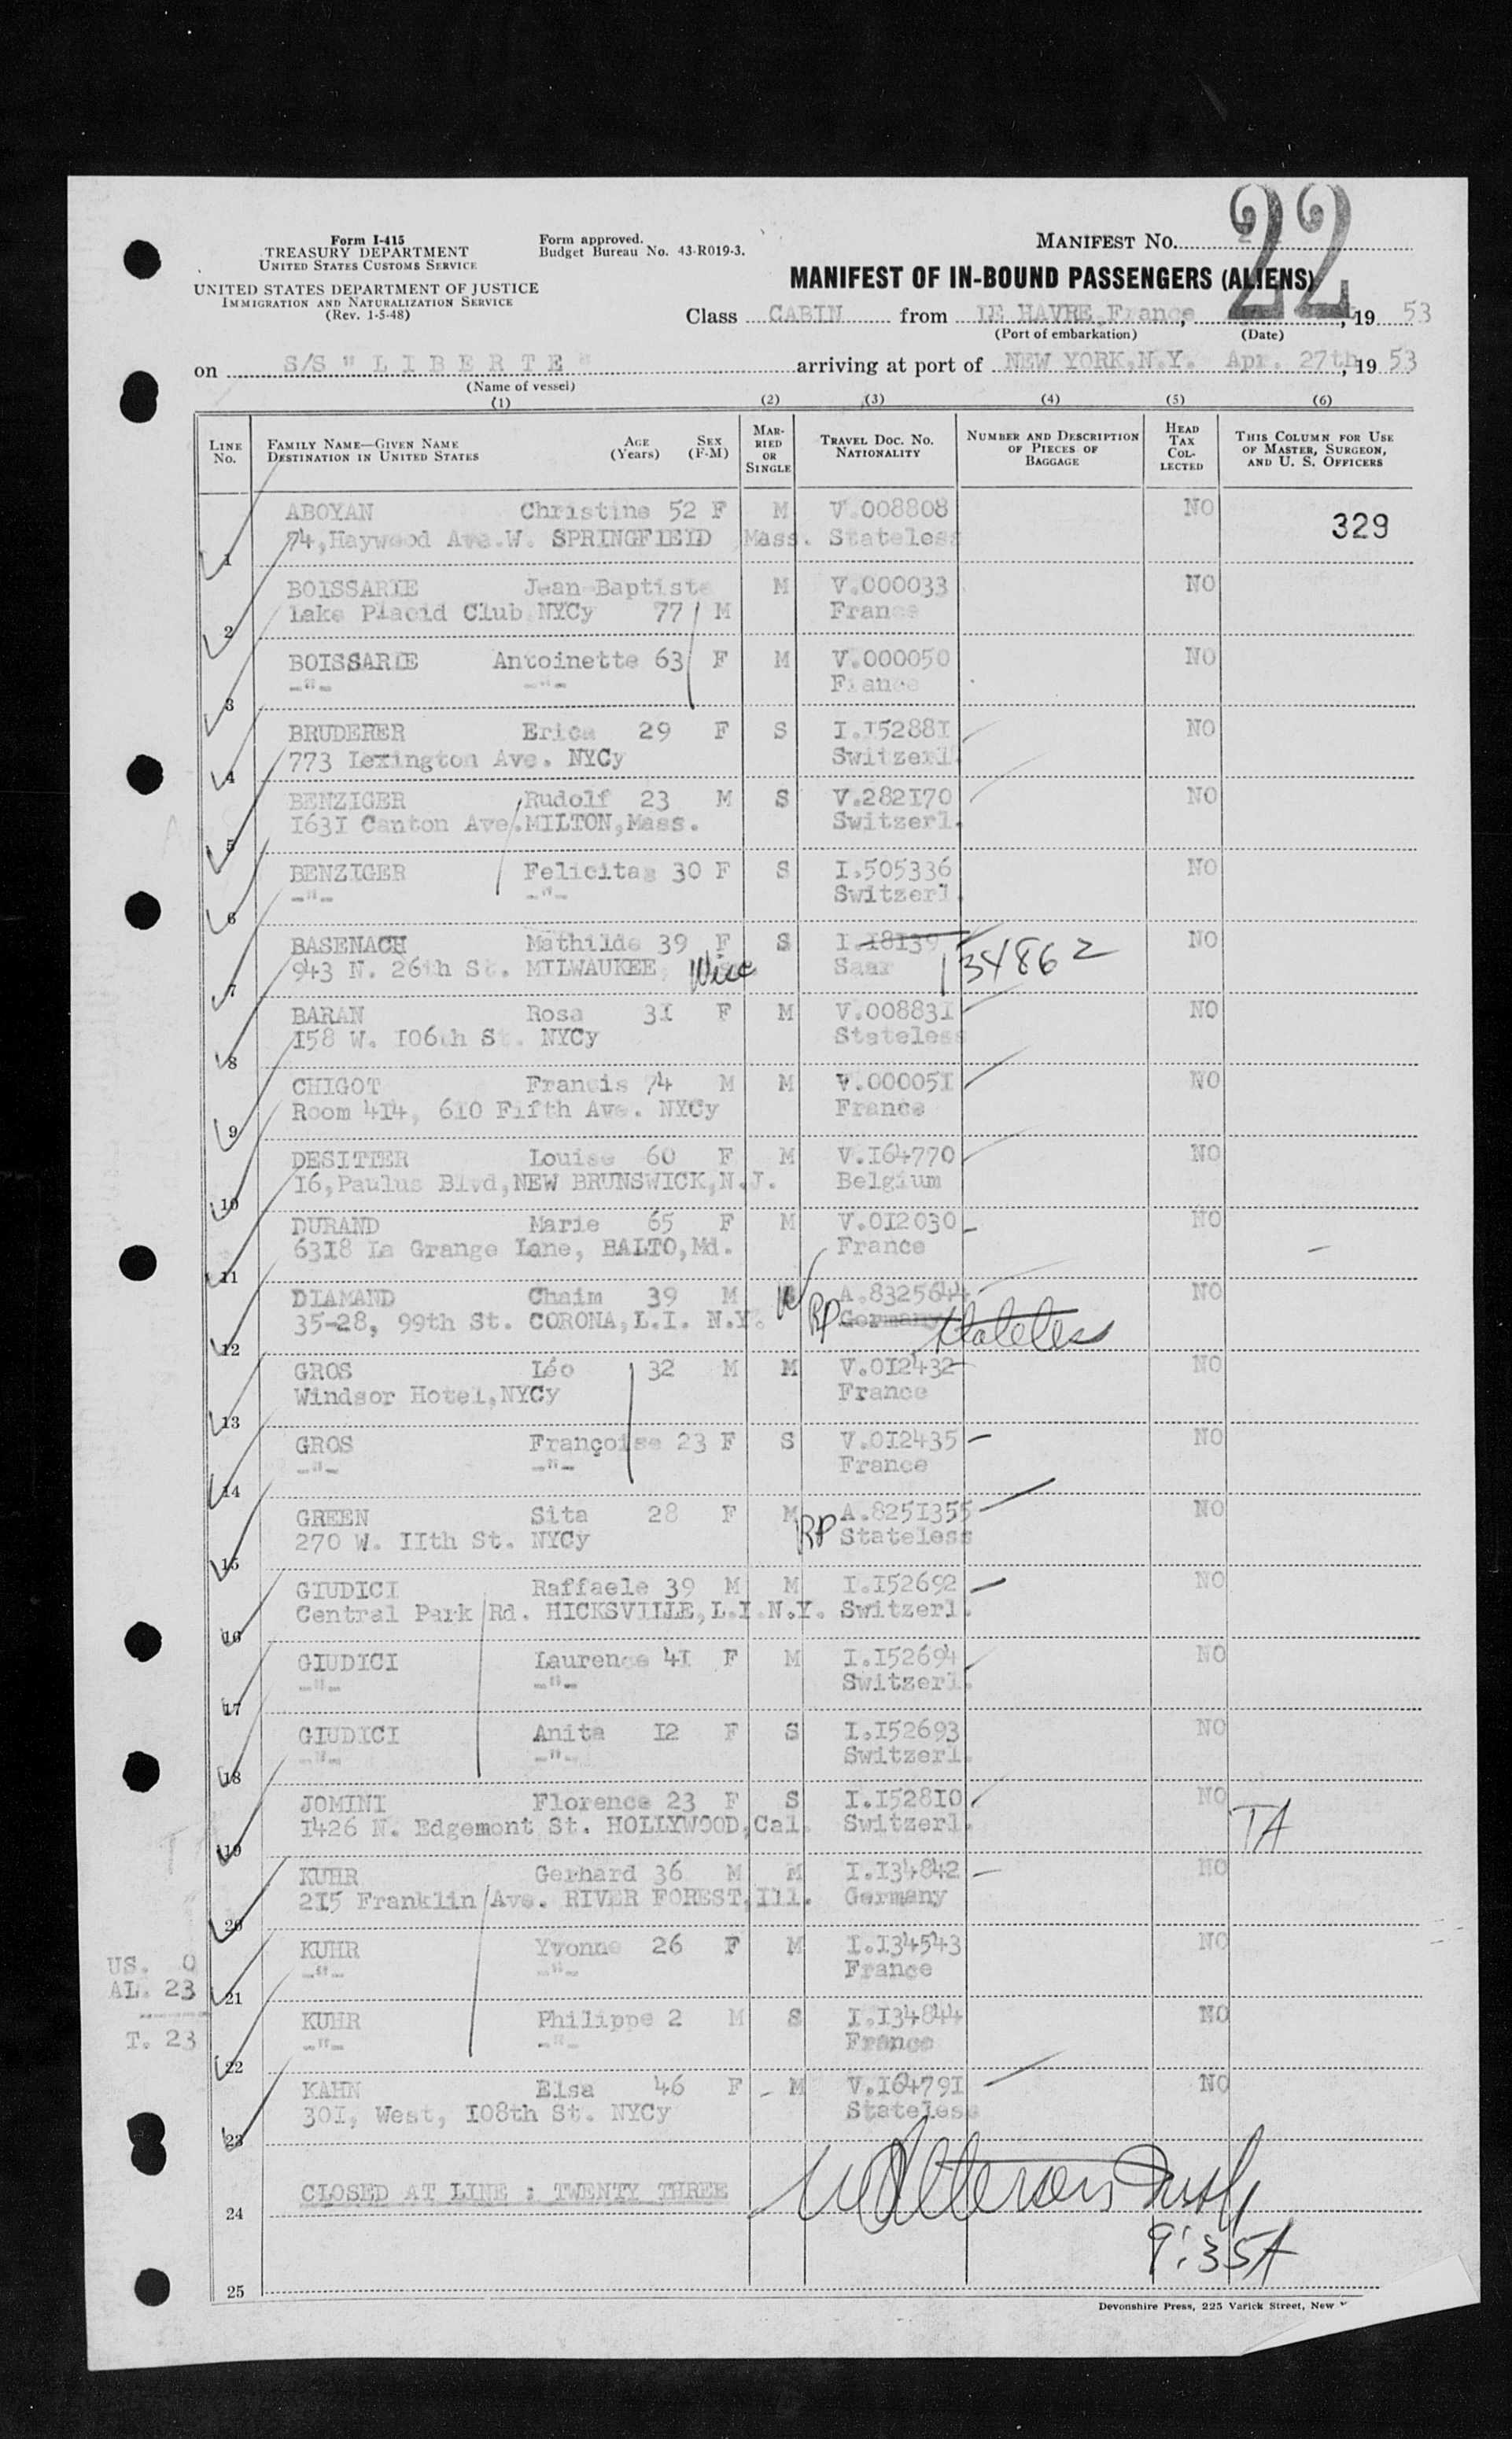 22
Form I-415
TREASURY DEPARTMENT
UNITED STATES CUSTOMS SERVICE
UNITED STATES DEPARTMENT OF JUSTICE
IMMIGRATION AND NATURALIZATION SERVICE
(Rev. 1-5-48)
Form approved.
Budget Bureau No. 43-R019-3.
MANIFEST NO.
MANIFEST OF IN-BOUND PASSENGERS (ALIENS)
Class CABIN from LE HAVRE, France, , 19 53
(Port of embarkation) (Date)
on S/S "LIBERTE" arriving at port of NEW YORK,N.Y. Apr. 27th, 19 53
(Name of vessel)
(1) (2) (3) (4) (5) (6)
LINE NO. FAMILY NAME—GIVEN NAME DESTINATION IN UNITED STATES AGE (Years) SEX (F-M) MARRIED OR SINGLE TRAVEL DOC. NO. NATIONALITY NUMBER AND DESCRIPTION OF PIECES OF BAGGAGE HEAD TAX COLLECTED THIS COLUMN FOR USE OF MASTER, SURGEON, AND U. S. OFFICERS
ABOYAN Christine 52 F M V.008808 NO 329
1 74,Haywood Ave.W. SPRINGFIELD Mass. Stateless
BOISSARIE Jean-Baptiste M V.000033 NO
2 Lake Placid Club NYCy 77 M France
BOISSARIE Antoinette 63 F M V.000050 NO
3 -"- -"- France
BRUDERER Erica 29 F S I.152881 NO
4 773 Lexington Ave. NYCy Switzerl.
BENZIGER Rudolf 23 M S V.282170 NO
5 1631 Canton Ave.MILTON,Mass. Switzerl.
BENZIGER Felicitas 30 F S I.505336 NO
6 -"- -"- Switzerl.
BASENACH Mathilde 39 F S I.18139 134862 NO
7 943 N. 26th St. MILWAUKEE, Wisc Saar
BARAN Rosa 31 F M V.008831 NO
8 158 W. 106th St. NYCy Stateless
CHIGOT Francis 74 M M V.000051 NO
9 Room 414, 610 Fifth Ave. NYCy France
DESITTER Louise 60 F M V.164770 NO
10 16,Paulus Blvd,NEW BRUNSWICK,N.J. Belgium
DURAND Marie 65 F M V.012030 NO
11 6318 La Grange Lane, BALTO,Md. France
DIAMAND Chaim 39 M W A.8325644 NO
12 35-28, 99th St. CORONA,L.I. N.Y. RP Germany Stateless
GROS Léo 32 M M V.012432 NO
13 Windsor Hotel,NYCy France
GROS Françoise 23 F S V.012435 NO
14 -"- -"- France
GREEN Sita 28 F M A.8251355 NO
15 270 W. 11th St. NYCy RP Stateless
GIUDICI Raffaele 39 M M I.152692 NO
16 Central Park Rd. HICKSVILLE,L.I.N.Y. Switzerl.
GIUDICI Laurence 41 F M I.152694 NO
17 -"- -"- Switzerl.
GIUDICI Anita 12 F S I.152693 NO
18 -"- -"- Switzerl.
JOMINI Florence 23 F S I.152810 NO
19 1426 N. Edgemont St. HOLLYWOOD,Cal. Switzerl. TA
KUHR Gerhard 36 M M I.134842 NO
20 215 Franklin Ave. RIVER FOREST,Ill. Germany
KUHR Yvonne 26 F M I.134543 NO
21 -"- -"- France
KUHR Philippe 2 M S I.134844 NO
22 -"- -"- France
KAHN Elsa 46 F M V.164791 NO
23 301, West, 108th St. NYCy Stateless
US. 0
AL. 23
T. 23
24 CLOSED AT LINE : TWENTY THREE
9:35A
25
Devonshire Press, 225 Varick Street, New